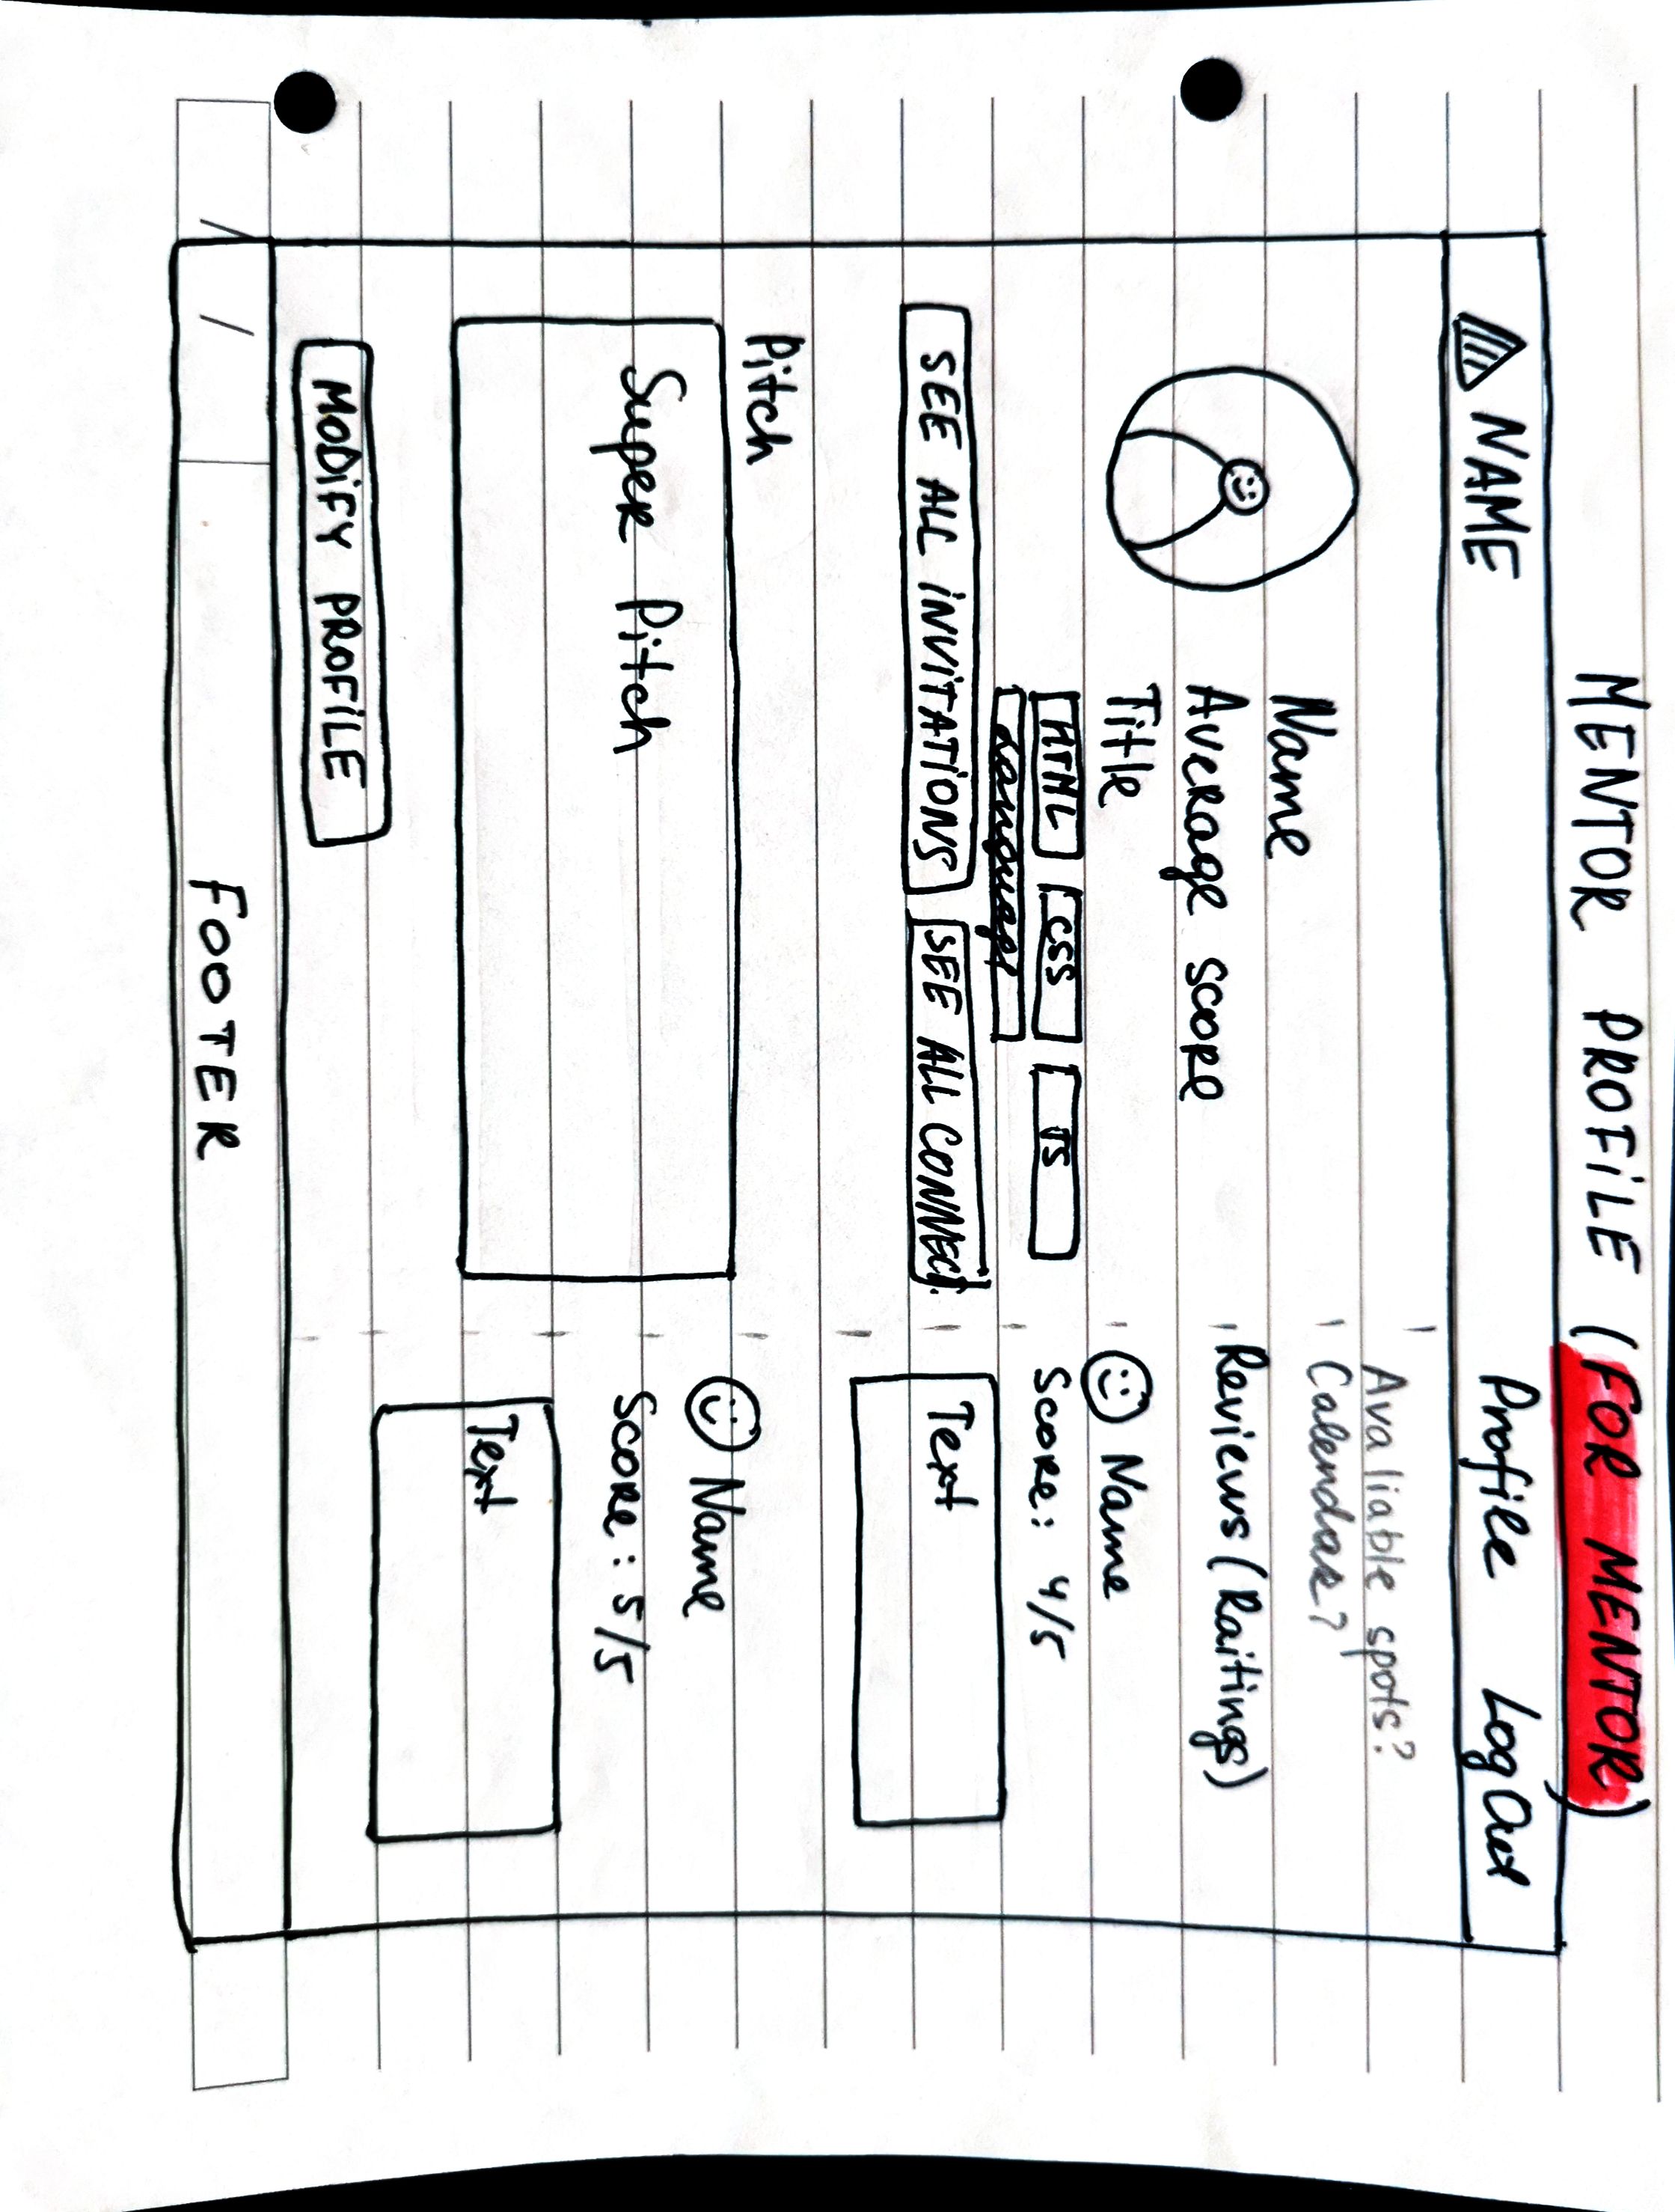 MENTOR PROFILE (FOR MENTOR)
NAME
Profile
Log Out
Name
Average score
Title
HTML
CSS
TS
SEE ALL INVITATIONS
SEE ALL CONNECT.
Pitch
Super Pitch
MODIFY PROFILE
Avaliable spots?
Calendar?
Reviews (Raitings)
Name
Score: 4/5
Text
Name
Score: 5/5
Text
FOOTER